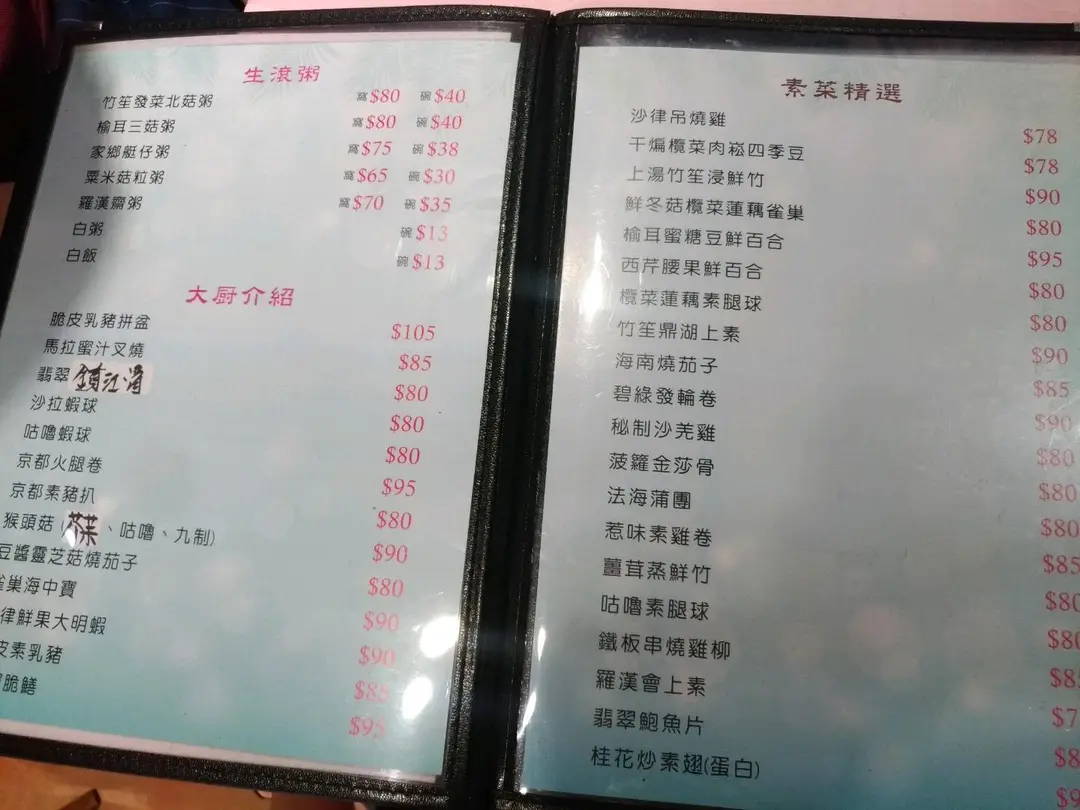 生滾粥
竹笙發菜北菇粥 窩$80 碗$40
榆耳三菇粥 窩$80 碗$40
家鄉艇仔粥 窩$75 碗$38
粟米菇粒粥 窩$65 碗$30
羅漢齋粥 窩$70 碗$35
白粥 碗$13
白飯 碗$13
大厨介紹
脆皮乳豬拼盆 $105
馬拉蜜汁叉燒 $85
翡翠鎮江滑 $80
沙拉蝦球 $80
咕嚕蝦球 $80
京都火腿卷 $95
京都素豬扒 $80
猴頭菇(芥菜、咕嚕、九制) $90
豆醬靈芝菇燒茄子 $80
雀巢海中寶 $90
律鮮果大明蝦 $90
皮素乳豬 $88
脆鱔 $95
素菜精選
沙律吊燒雞 $78
干煸欖菜肉崧四季豆 $78
上湯竹笙浸鮮竹 $90
鮮冬菇欖菜蓮藕雀巢 $80
榆耳蜜糖豆鮮百合 $95
西芹腰果鮮百合 $80
欖菜蓮藕素腿球 $80
竹笙鼎湖上素 $90
海南燒茄子 $85
碧綠發輪卷 $90
秘制沙羌雞 $80
菠籮金莎骨 $80
法海蒲團 $80
惹味素雞卷 $85
薑茸蒸鮮竹 $80
咕嚕素腿球 $80
鐵板串燒雞柳
羅漢會上素
翡翠鮑魚片
桂花炒素翅(蛋白)